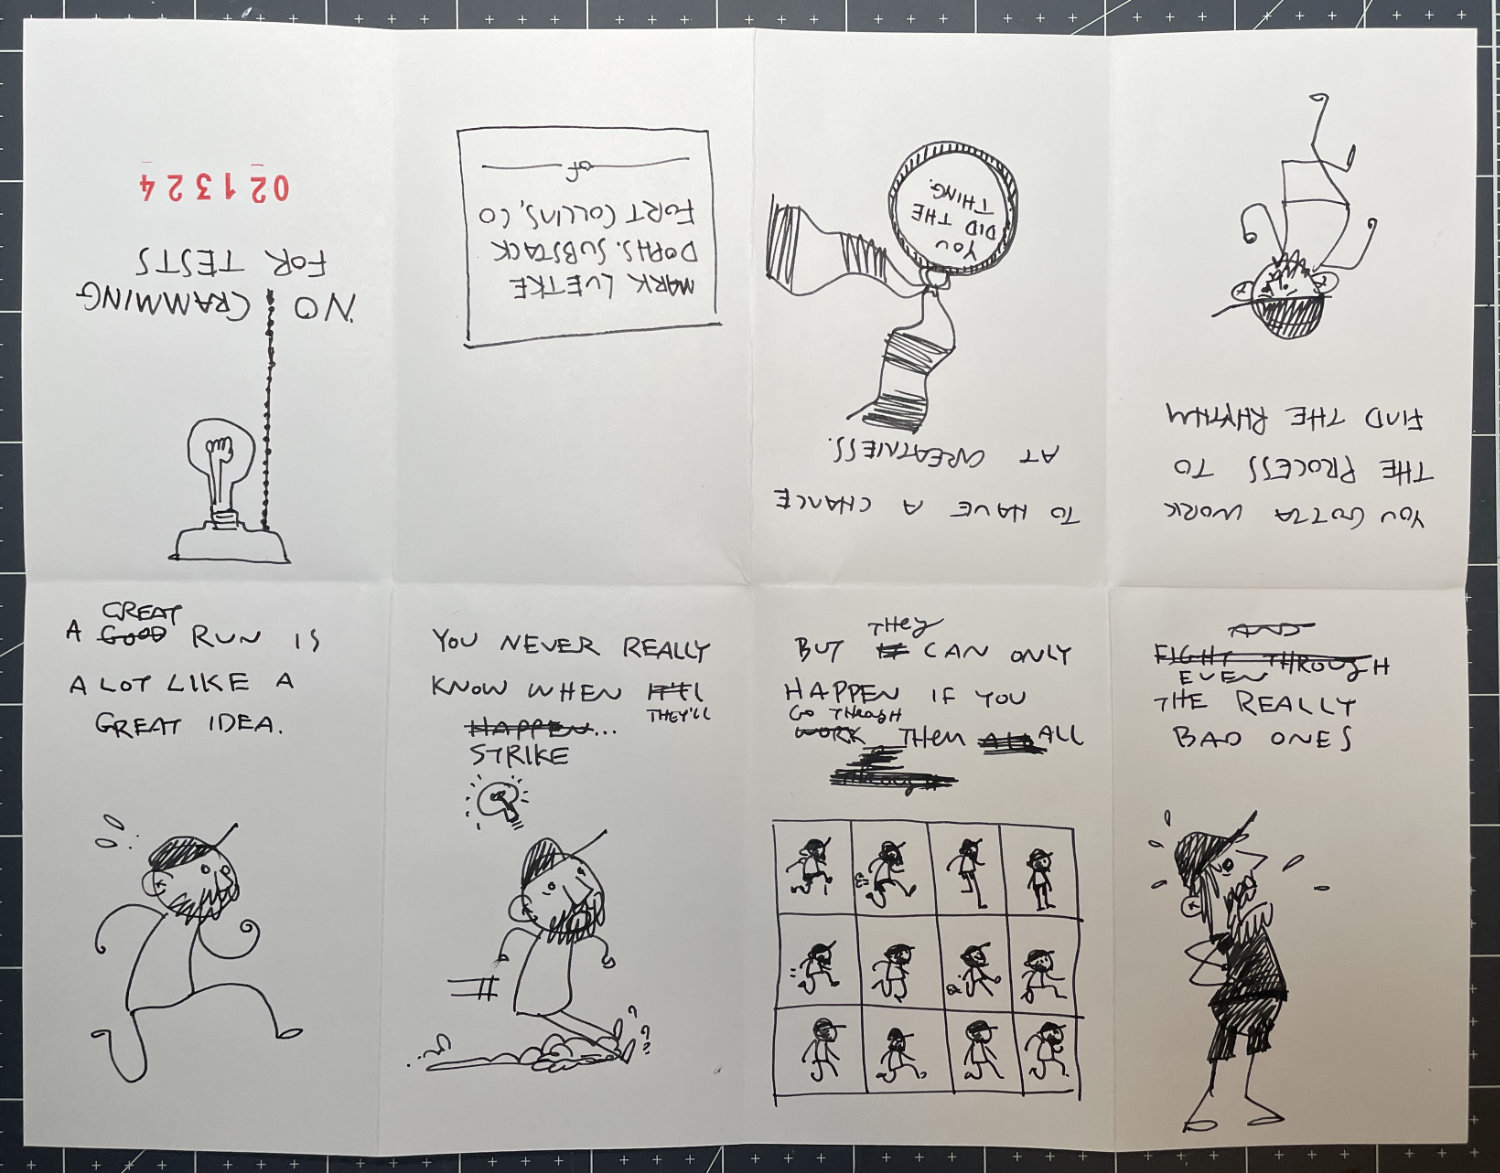 NO CRAMMING
FOR TESTS
021324
GREAT
A GOOD RUN IS
A LOT LIKE A
GREAT IDEA.
YOU NEVER REALLY
KNOW WHEN IT'LL
THEY'LL
HAPPEN...
STRIKE
THEY
BUT IT CAN ONLY
HAPPEN IF YOU
GO THROUGH
WORK THEM ALL
AND
FIGHT THROUGH
EVEN
THE REALLY
BAD ONES
YOU GOTTA WORK
THE PROCESS TO
FIND THE RHYTHM
TO HAVE A CHANCE
AT GREATNESS.
YOU
DID THE
THING.
MARK LUETKE
DOPHS.SUBSTACK
FORT COLLINS, CO
OF